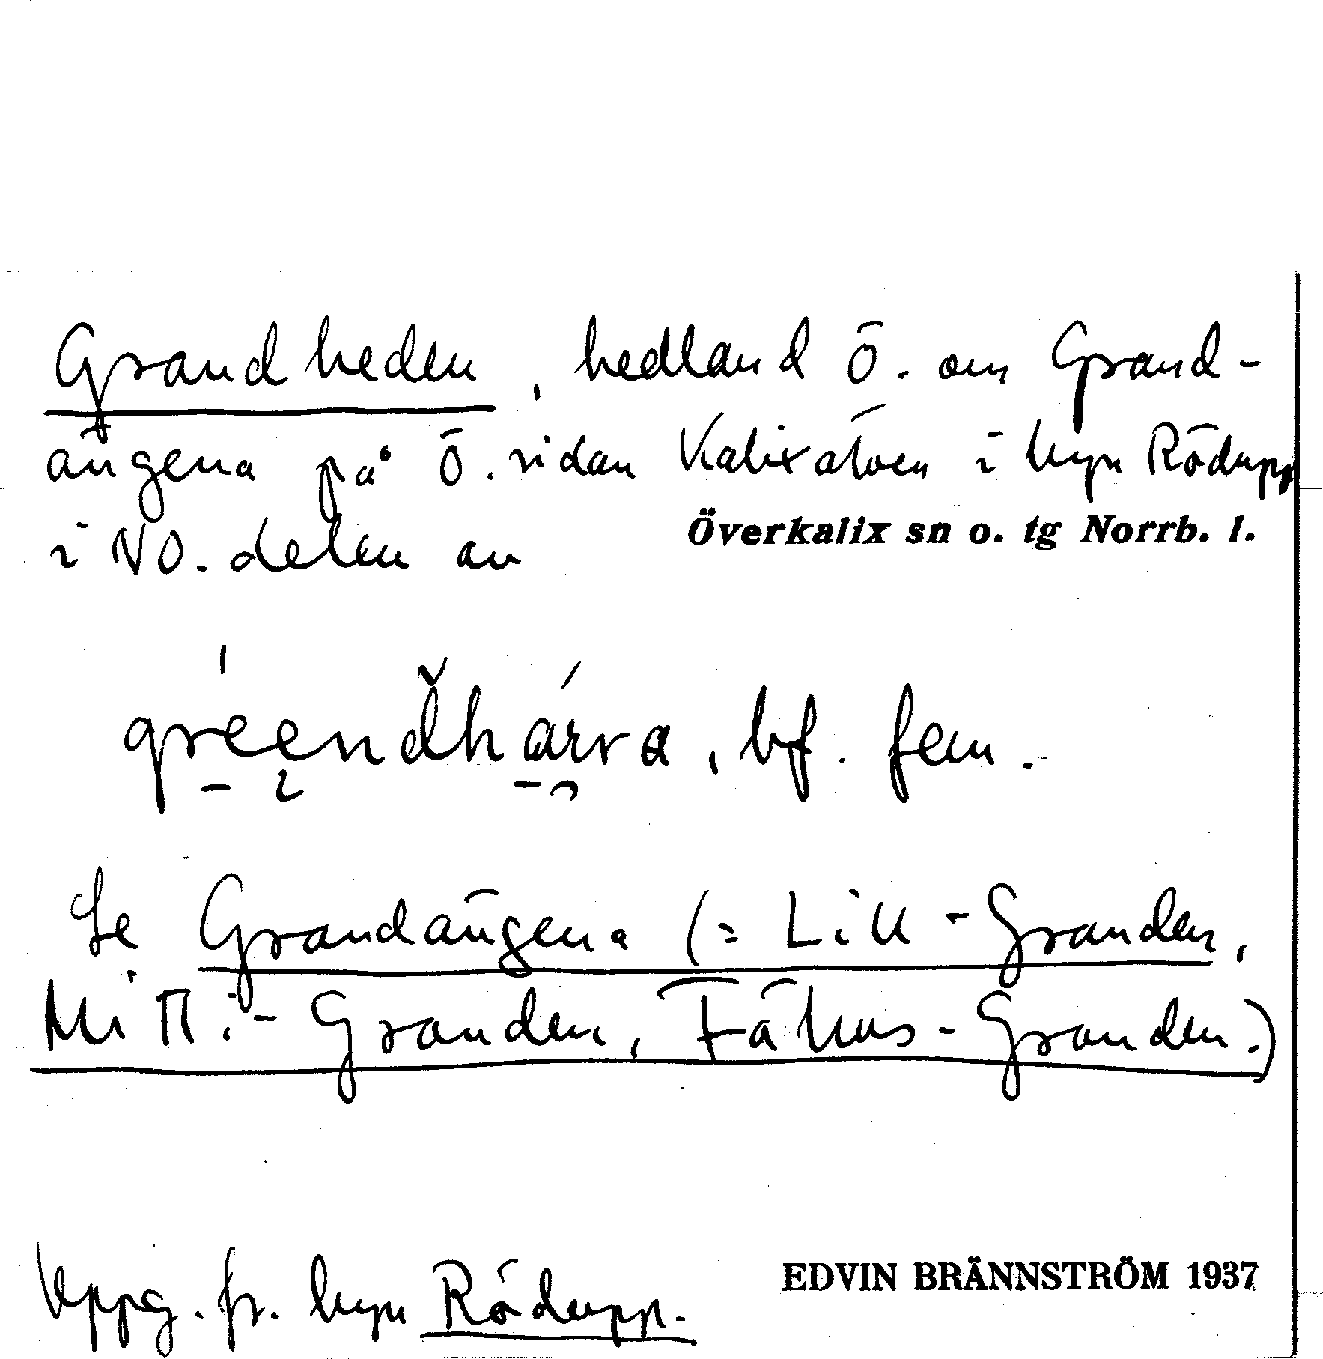 Grandheden, hedland ö. om Grand-
ängena på ö. sidan Kalixälven i byn Rödupp
i NO. delen av
Överkalix sn o. tg Norrb. l.
bf. fem.
Se Grandängena (= Lill-Granden,
Mitti-Granden, Fähus-Granden.)
Uppg. fr. byn Rödupp.
EDVIN BRÄNNSTRÖM 1937